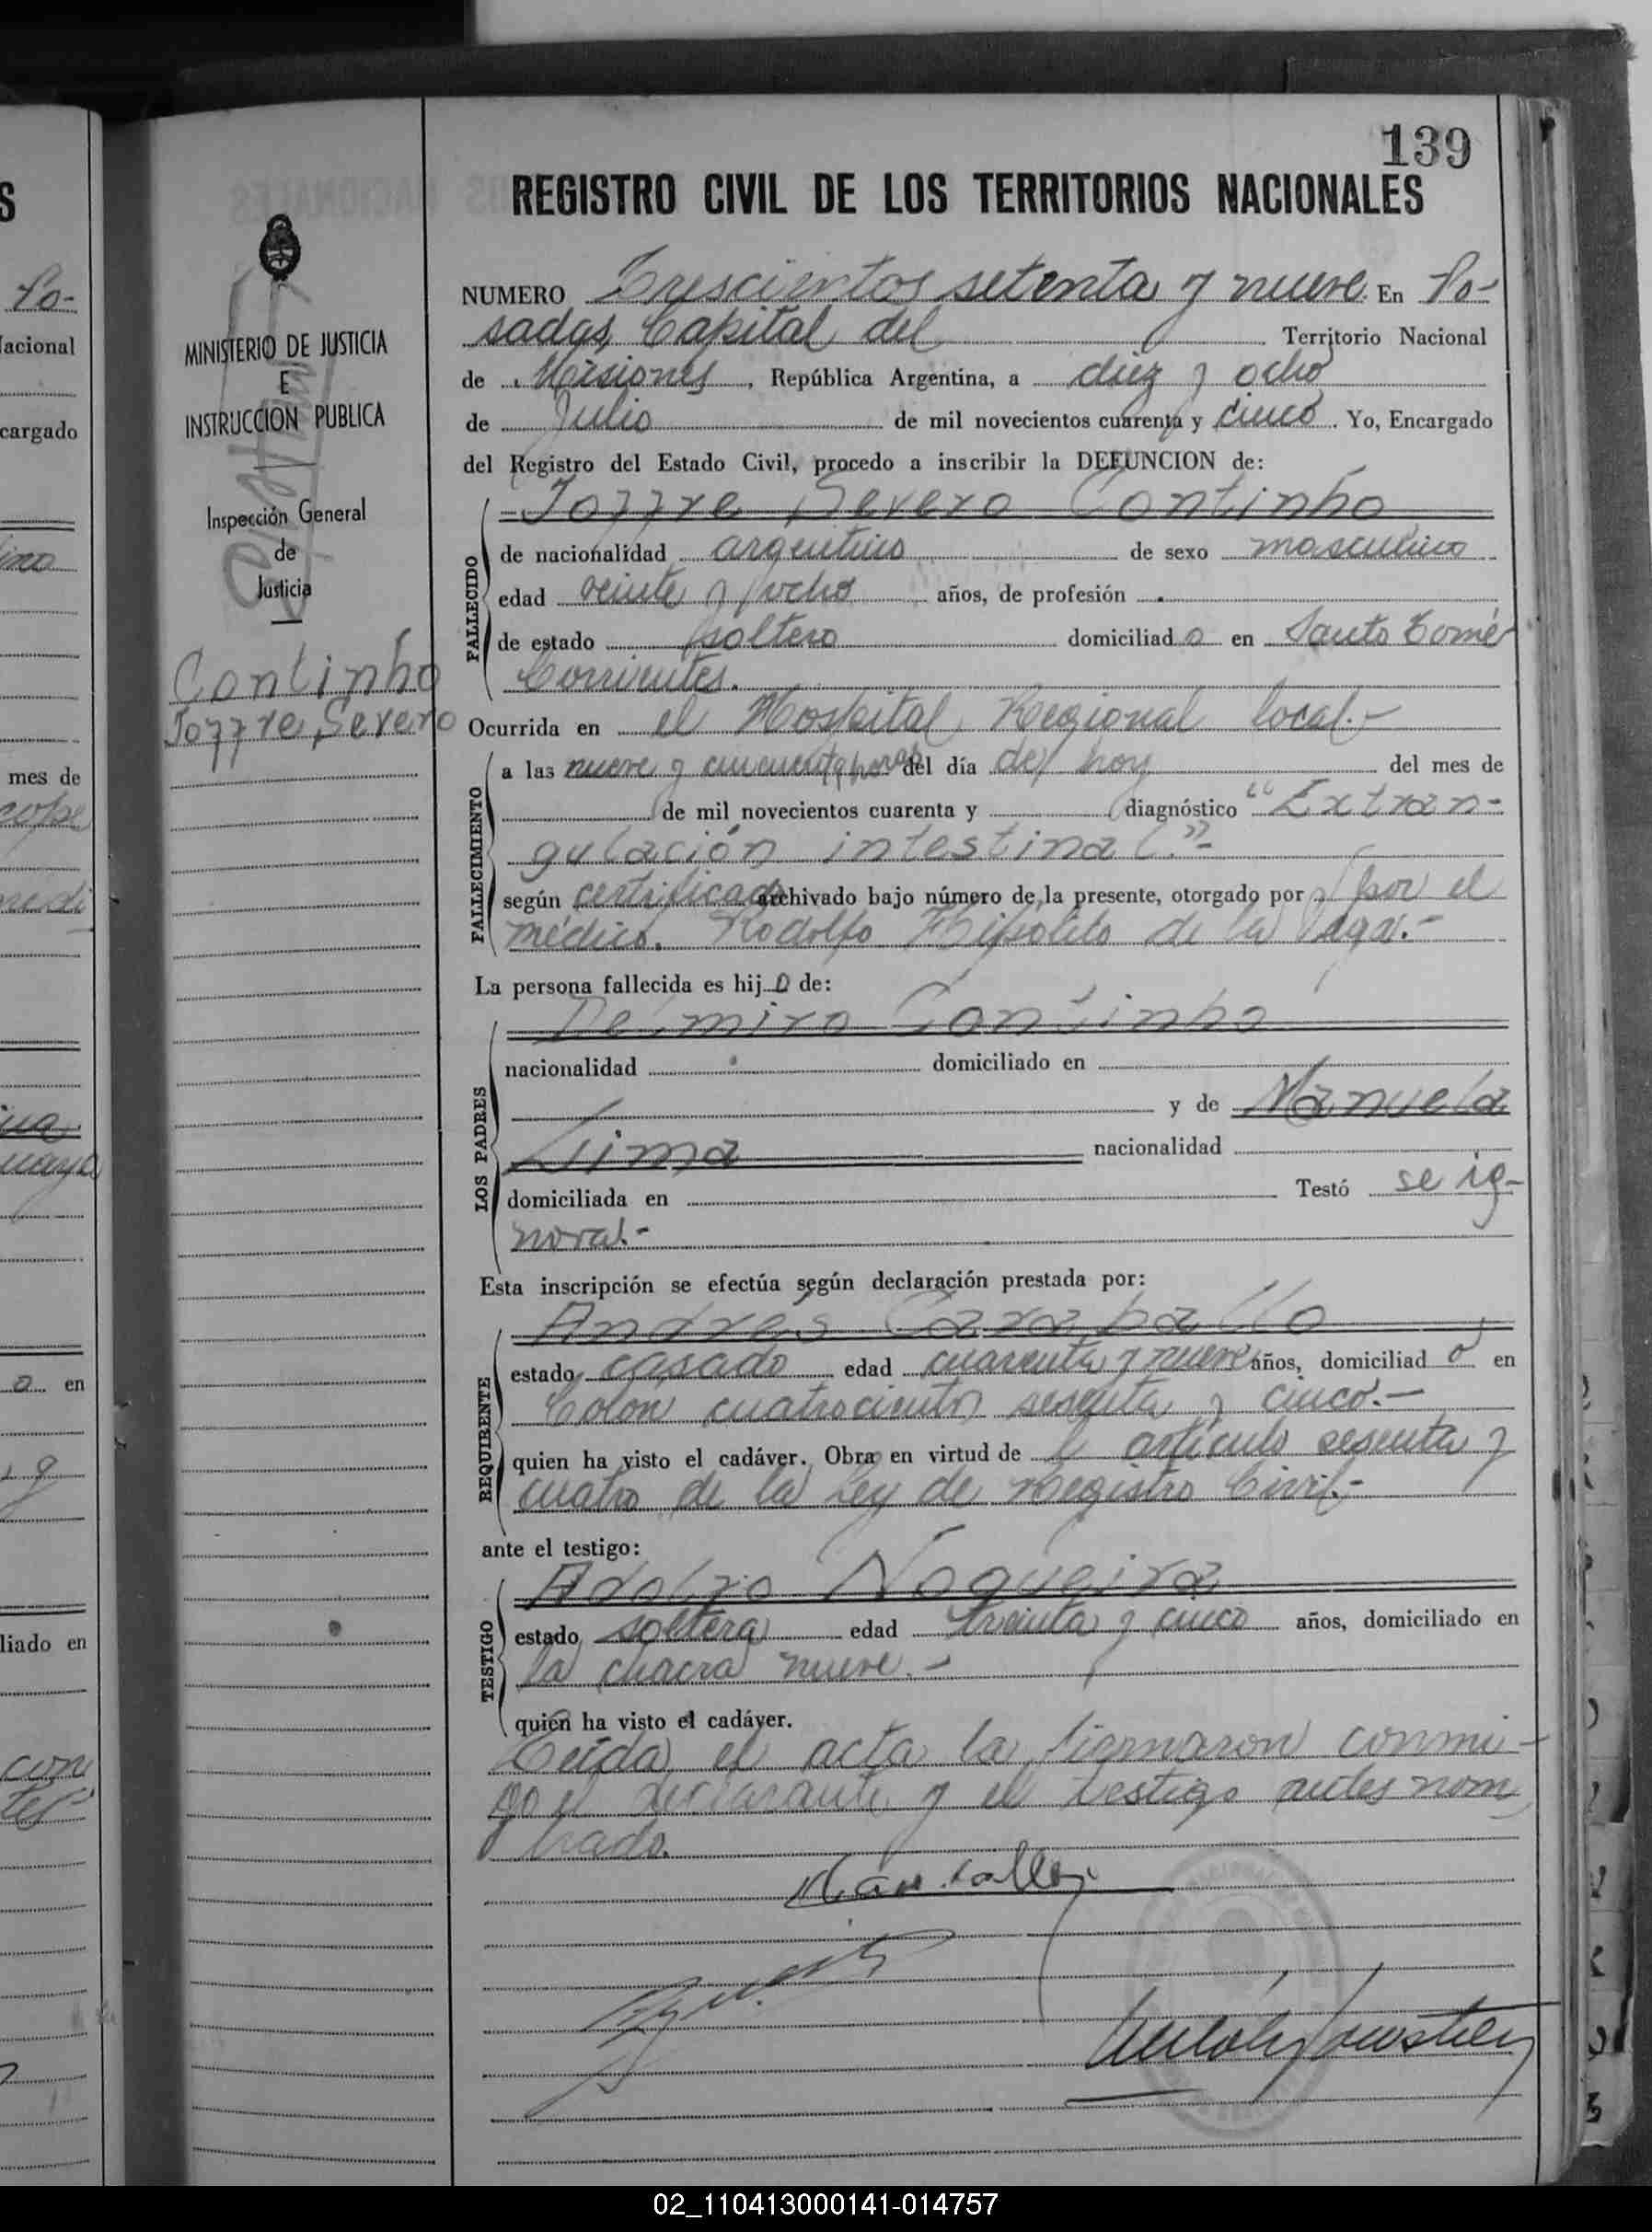 139
REGISTRO CIVIL DE LOS TERRITORIOS NACIONALES
MINISTERIO DE JUSTICIA
E
INSTRUCCION PUBLICA
Inspección General
de
Justicia
Continho
Joffre Severo
NUMERO Trescientos setenta y nueve En Po-
sadas, Capital del Territorio Nacional
de Misiones, República Argentina, a diez y ocho
de Julio de mil novecientos cuarenta y cinco. Yo, Encargado
del Registro del Estado Civil, procedo a inscribir la DEFUNCION de:
FALLECIDO
Joffre Severo Continho
de nacionalidad argentino de sexo masculino
edad veinte y ocho años, de profesión
de estado soltero domiciliado en Santo Tomé
Corrientes.
Ocurrida en el Hospital Regional local.-
FALLECIMIENTO
a las nueve y cincuenta horas del día de hoy del mes de
de mil novecientos cuarenta y diagnóstico "Extran-
gulación intestinal."-
según certificado archivado bajo número de la presente, otorgado por por el
médico. Rodolfo Hipolito de la Vega.-
La persona fallecida es hijo de:
LOS PADRES
Delmiro Continho
nacionalidad domiciliado en
y de Manuela
Lima nacionalidad
domiciliada en Testó se ig-
nora.-
Esta inscripción se efectúa según declaración prestada por:
REQUIRENTE
Andrés Caraballo
estado casado edad cuarenta y nueve años, domiciliado en
Colon cuatrocientos sesenta y cinco.-
quien ha visto el cadáver. Obra en virtud de l artículo sesenta y
cuatro de la Ley de Registro Civil.-
ante el testigo:
TESTIGO
Adolfo Nogueira
estado soltero edad treinta y cinco años, domiciliado en
la chacra nueve.-
quien ha visto el cadáver.
Leída el acta la firmaron conmi-
go el declarante y el testigo antes nom
brado.
S
Po-
Nacional
cargado
mes de
en
liado en
02_110413000141-014757